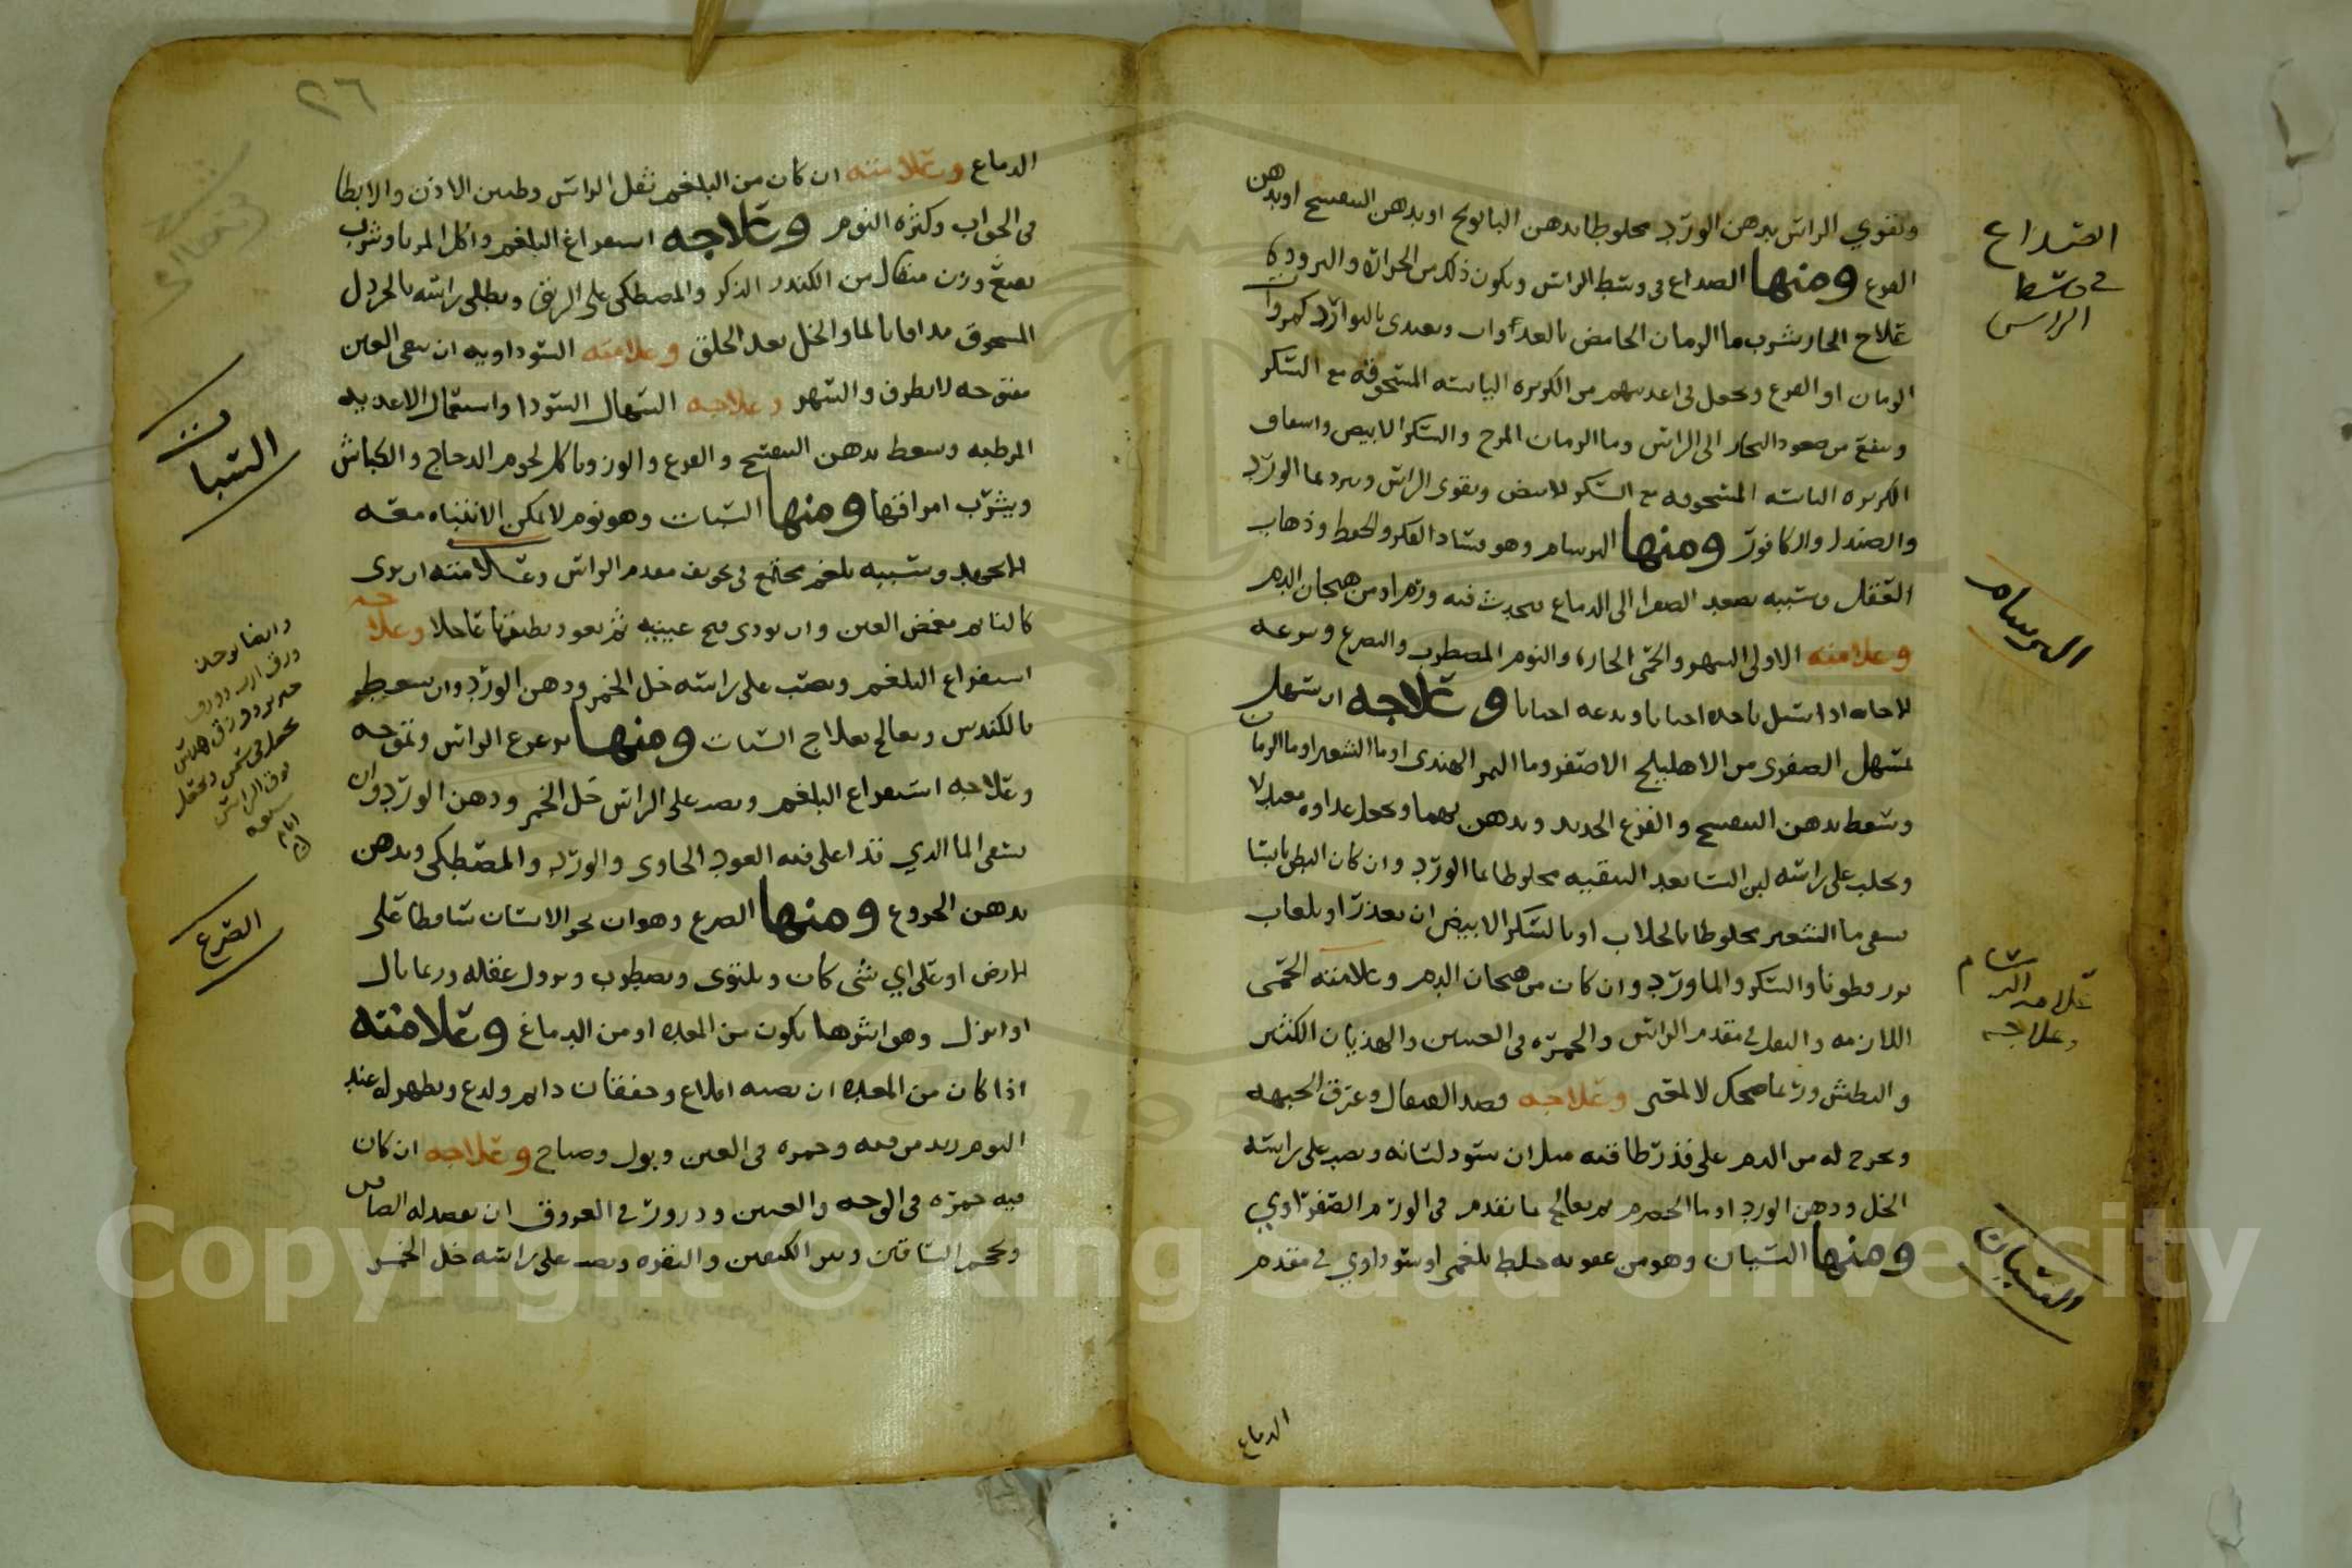 الصداع
في وسط
الراس
وتقوي الراس بدهن الورد مخلوطا بدهن البابونج او بدهن البنفسج او بدهن
القرع ومنها الصداع في وسط الراس ويكون ذلك من الحرارة والبرودة
علاج الحار شرب ما الرمان الحامض بالغداوات ويغدى بالبوارد كمزوات
الرمان او القرع ويجعل في اغديتهم من الكزبره اليابسه المسحوقه مع السكر
ويمنع من صعود البخار الى الراس وما الرمان المزج والسكر الابيض واسفاف
الكزبره اليابسه المسحوقه مع السكر الابيض ويقوى الراس ويبرد بما الورد
والصندل والكافور ومنها البرسام وهو فساد الفكر والحفظ وذهاب
العقل وسببه تصعد الصفرا الى الدماغ فيحدث فيه ورم او من هيجان الدم
وعلامته الاولى السهر والحمى الحاره والنوم المضطرب والتصرع وسرعه
الاجابه اذا سيل ياخذه احيانا ويدعه احيانا وعلاجه ان يسهل
بمسهل الصفرى من الاهليلج الاصفر وما التمر الهندى او ما الشعير او ما الرمان
ويسعط بدهن البنفسج والقرع الجديد ويدهن بهما ويجعل غداوه معتدلا
ويحلب على راسه لبن النسا بعد التنقيه مخلوطا بما الورد وان كان البطن يابسا
يسقى ما الشعير مخلوطا بالجلاب او بالسكر الابيض ان تعذر او بلعاب
بزر قطونا والسكر والماورد وان كان من هيجان الدم وعلامته الحمى
اللازمه والثقل في مقدم الراس والحمره في العينين والهذيان الكثير
والعطش وربما ضحك لا لمعنى وعلاجه فصد القيفال وعرق الجبهه
ويخرج له من الدم على قدر طاقته قبل ان يسود لسانه ويصب على راسه
الخل ودهن الورد او ما الحصرم ثم يعالج بما تقدم في الورم الصفراوي
ومنها السبات وهو من عفونه خلط بلغمى او سوداوي في مقدم
البرسام
علامة البرسام
وعلاجه
السبات
الدماغ
٢٦
الدماغ وعلامته ان كان من البلغم ثقل الراس وطنين الاذن والابطا
في الجواب وكثره النوم وعلاجه استفراغ البلغم واكل المربا وشرب
نصف وزن مثقال من الكندر الذكر والمصطكى على الريق ويطلى راسه بالخردل
المسحوق مدافا بالما والخل بعد الحلق وعلامته السوداويه ان تبقى العين
مفتوحه لا تطرف والسهر وعلاجه اسهال السودا واستعمال الاغديه
المرطبه وسعط بدهن البنفسج والقرع واللوز وياكل لحوم الدجاج والكباش
ويشرب امراقها ومنها السبات وهو نوم لا يمكن الانتباه معه
وسببه بلغم مجتمع في تجويف مقدم الراس وعلامته ان يرى
كالنايم مغمض العين وان نودى فتح عينيه ثم يعود يطبقها عاجلا وعلاجه
استفراغ البلغم ويصب على راسه خل الخمر ودهن الورد وان يسعط
بالكندس ويعالج بعلاج السبات ومنها تزعزع الراس وتموجه
وعلاجه استفراغ البلغم ويصب على الراس خل الخمر ودهن الورد وان
يسقى الما الذي قد اغلى فيه العود الحاوى والورد والمصطكى ويدهن
بدهن الخروع ومنها الصرع وهو ان يخر الانسان ساقطا على
الارض او على اي شى كان ويلتوى ويضطرب ويزول عقله وربما بال
او انزل وهو اشرها يكون من المعده او من الدماغ وعلامته
اذا كان من المعده ان يصيبه اقلاع وخفقان دايم ولدغ ويظهر له عند
النوم زبد من فمه وحمره في العين وبول وصياح وعلاجه ان كان
فيه حمره في الوجه والعينين ودرور في العروق ان يفصد له الصافن
ويحجم الساقين وبين الكتفين والنقره ويصب على راسه خل الخمر
السبات
وايضا يوخذ
يجعل في
فوق الراس
سبعه
ايام
الصرع